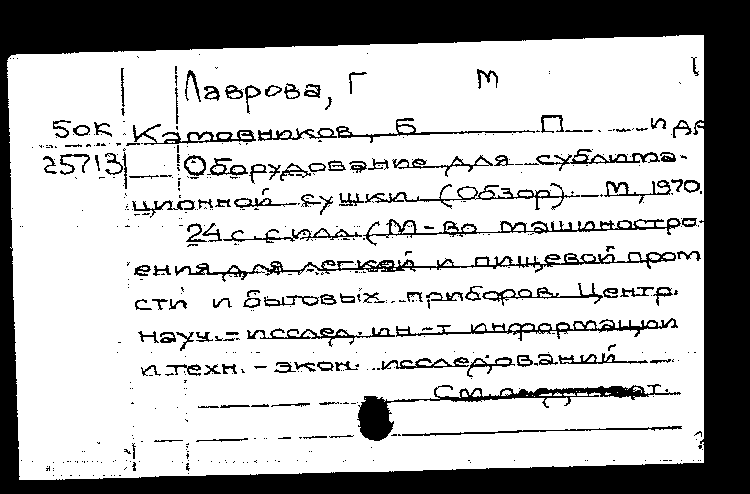 Лаврова, Г М
50к Катовников, Б П и др
25713 Оборудование для сублима-
ционной сушки. (Обзор). М., 1970.
24 с. с илл. (М-во машиностро-
ения для легкой и пищевой пром
сти и бытовых приборов. Центр.
науч.-исслед. ин-т информации
и техн.-экон. исследований
См.